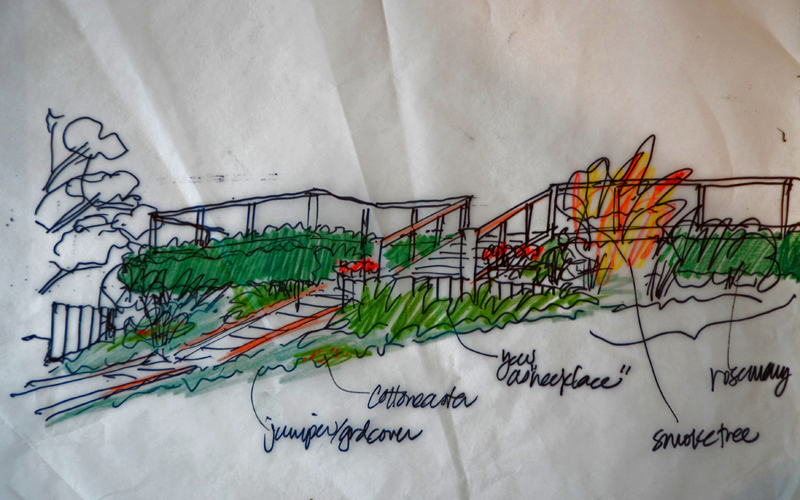 yews
as "necklace"
rosemary
cottoneaster
juniper/grdcover
smoketree